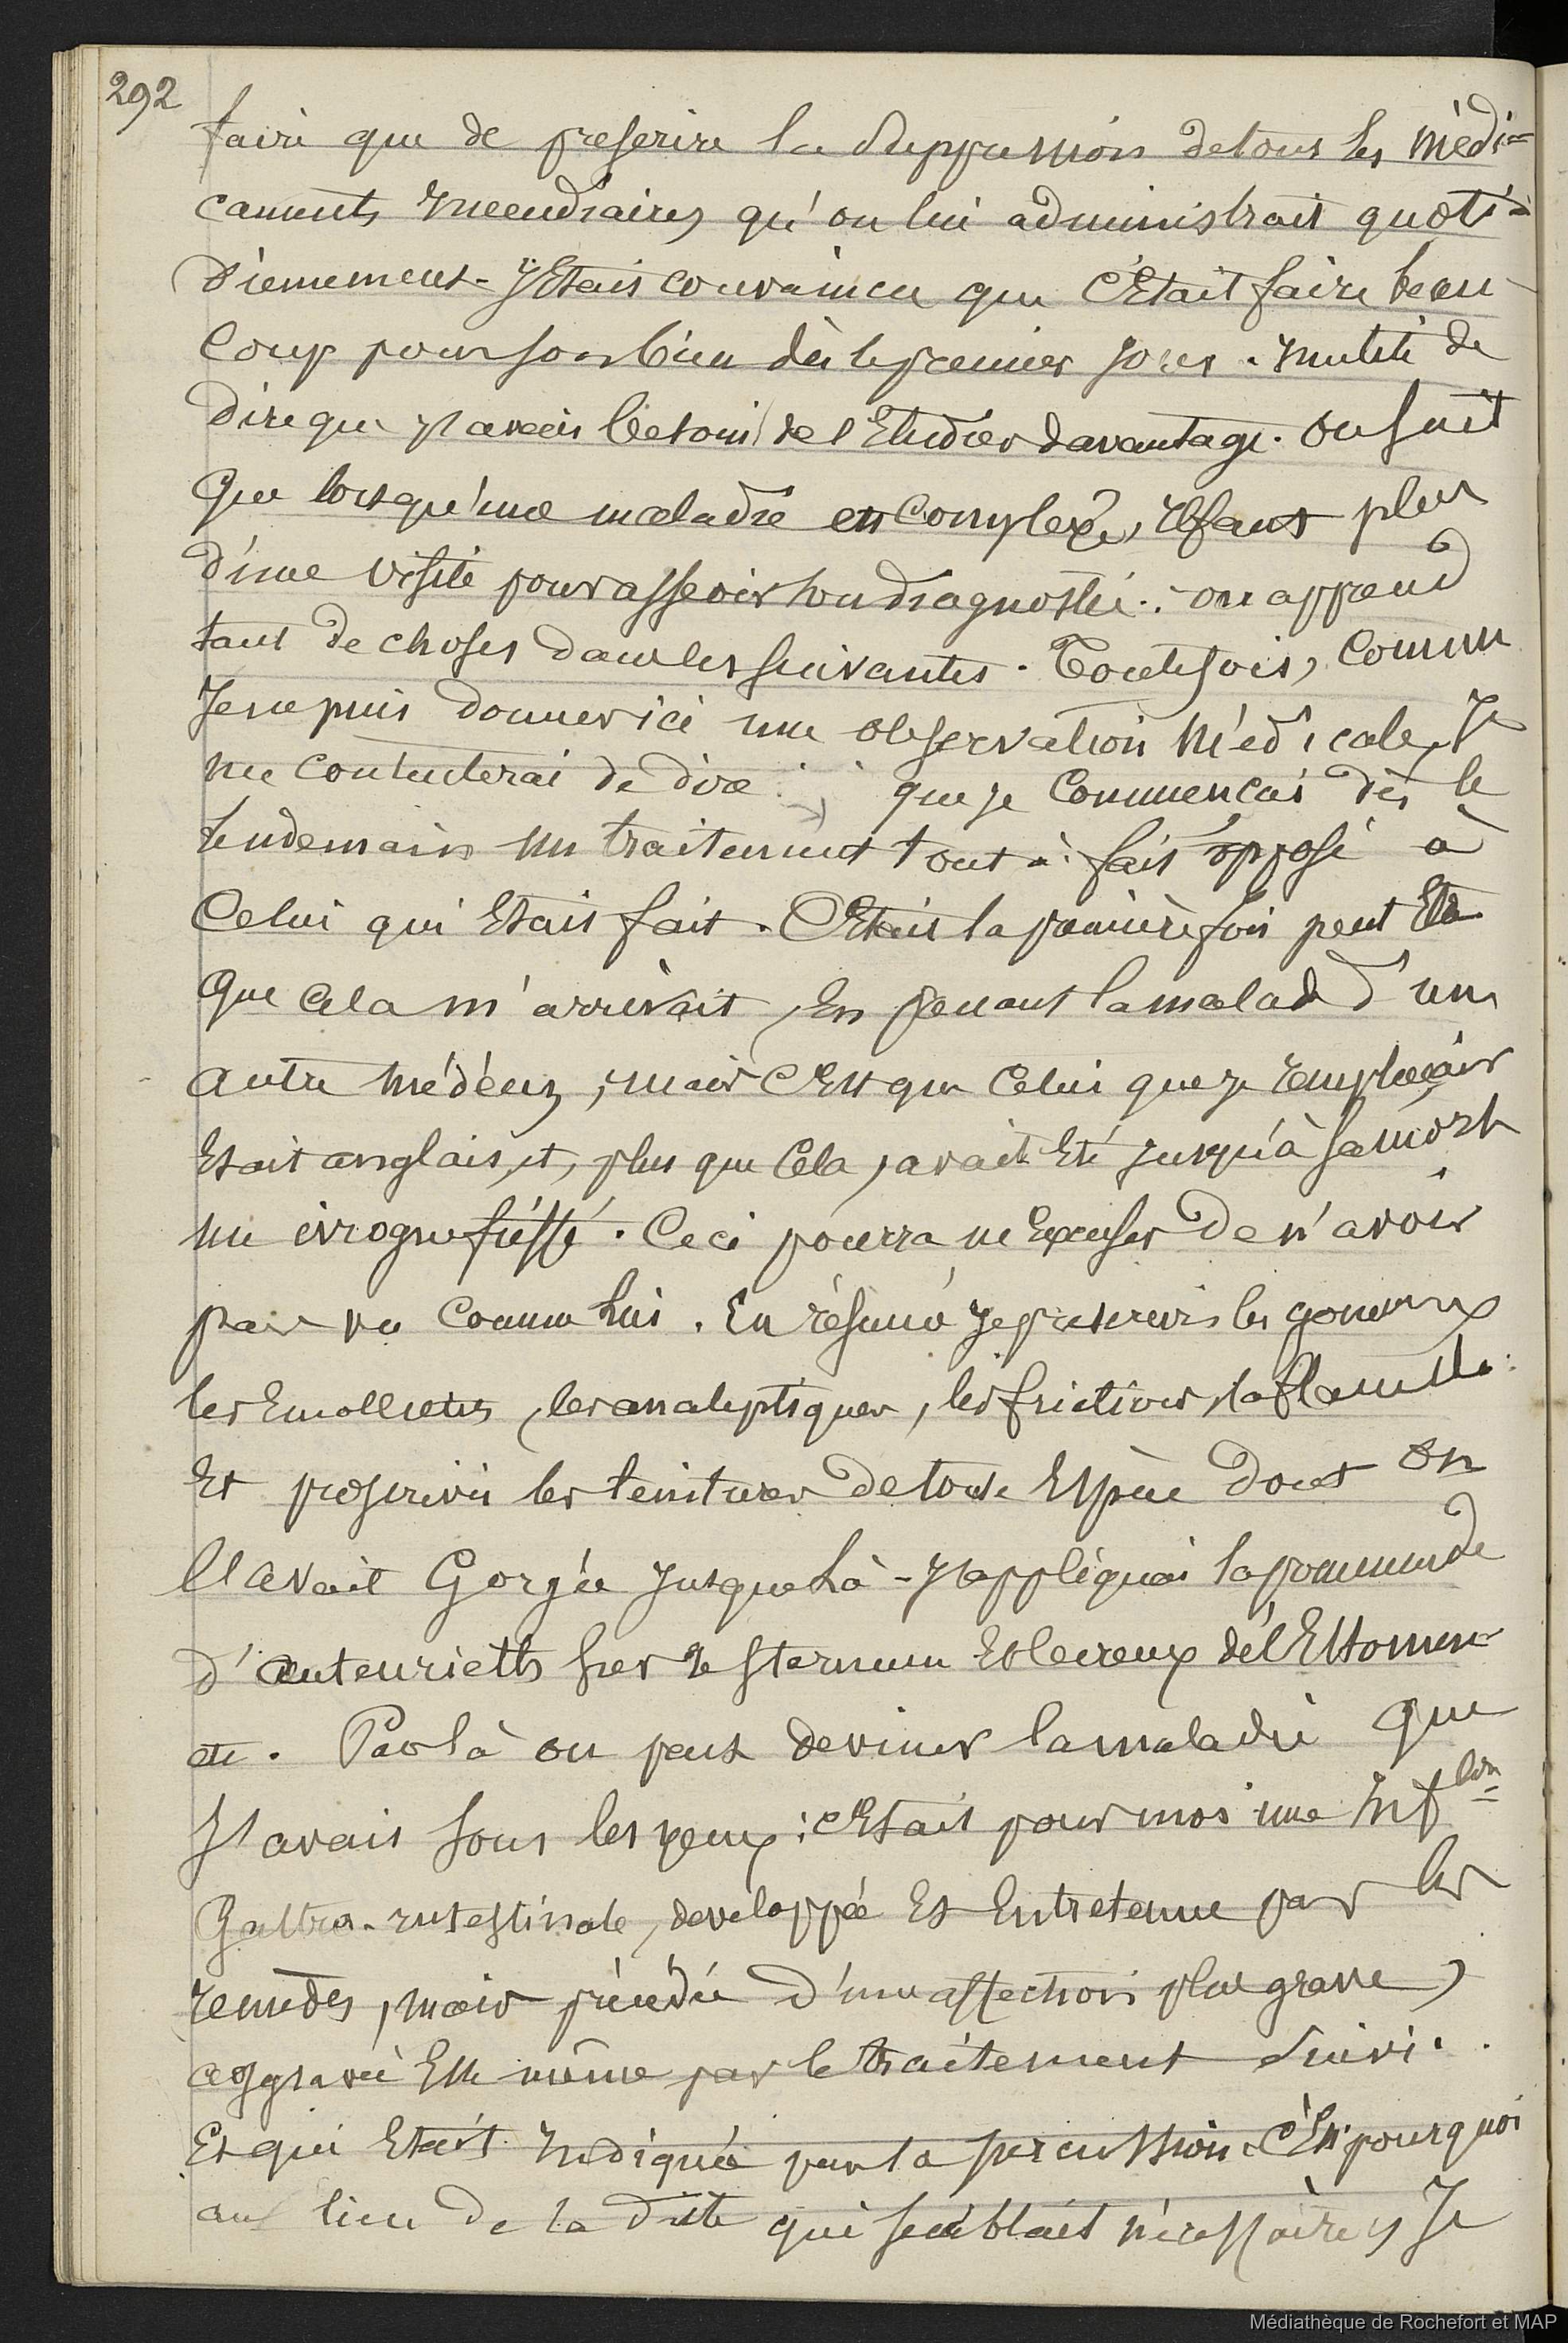 292
faire que de prescrire la suppression de tous les médi=
caments incendiaires qu'on lui administrait quoti=
diennement - J'étais convaincu que c'était faire beau-
coup pour son bien dès le premier jour. Inutile de
dire que j'avais besoin de l'Etudier davantage. On sait
que lorsqu'une maladie est complexe, il faut plus
d'une visite pour asseoir son diagnostic : on apprend
tant de choses dans les suivantes. Toutefois, comme
Je ne puis donner ici une observation Médicale, Je
me contenterai de dire que je commençai dès le
lendemain un traitement tout à fait opposé à
Celui qui Etait fait. C'Etait la première fois peut Etre
que cela m'arrivait, En prenant la malade d'un
autre médécin, mais c'Est que celui que je remplaçais
Etait anglais, et, plus que cela, avait Eté jusqu'à sa mort
un ivrogne fiéffé. Ceci pourra m'Excuser de n'avoir
pas vu comme lui. En résumé Je prescrivis les gommeux
les Emollients, les analeptiques, les frictions, la flanelle
Et proscrivis les teintures de toute Espèce dont on
l'avait Gorgée jusque là - J'appliquai la pommade
d'autenrieth sur le sternum Et le creux de l'Estomac
etc. Par là on peut deviner la maladie que
J'avais sous les yeux : c'Etait pour moi une Inf<sup>lion</sup>
Gastro-intestinale, développée Et Entretenue par les
remèdes, mais précédée d'une affection plus grave,
aggravée Elle même par le traitement suivi.
Et qui Etait Indiquée par la percussion. C'Est pourquoi
au lieu de la diète qui semblait nécessaire, Je
Médiathèque de Rochefort et MAP